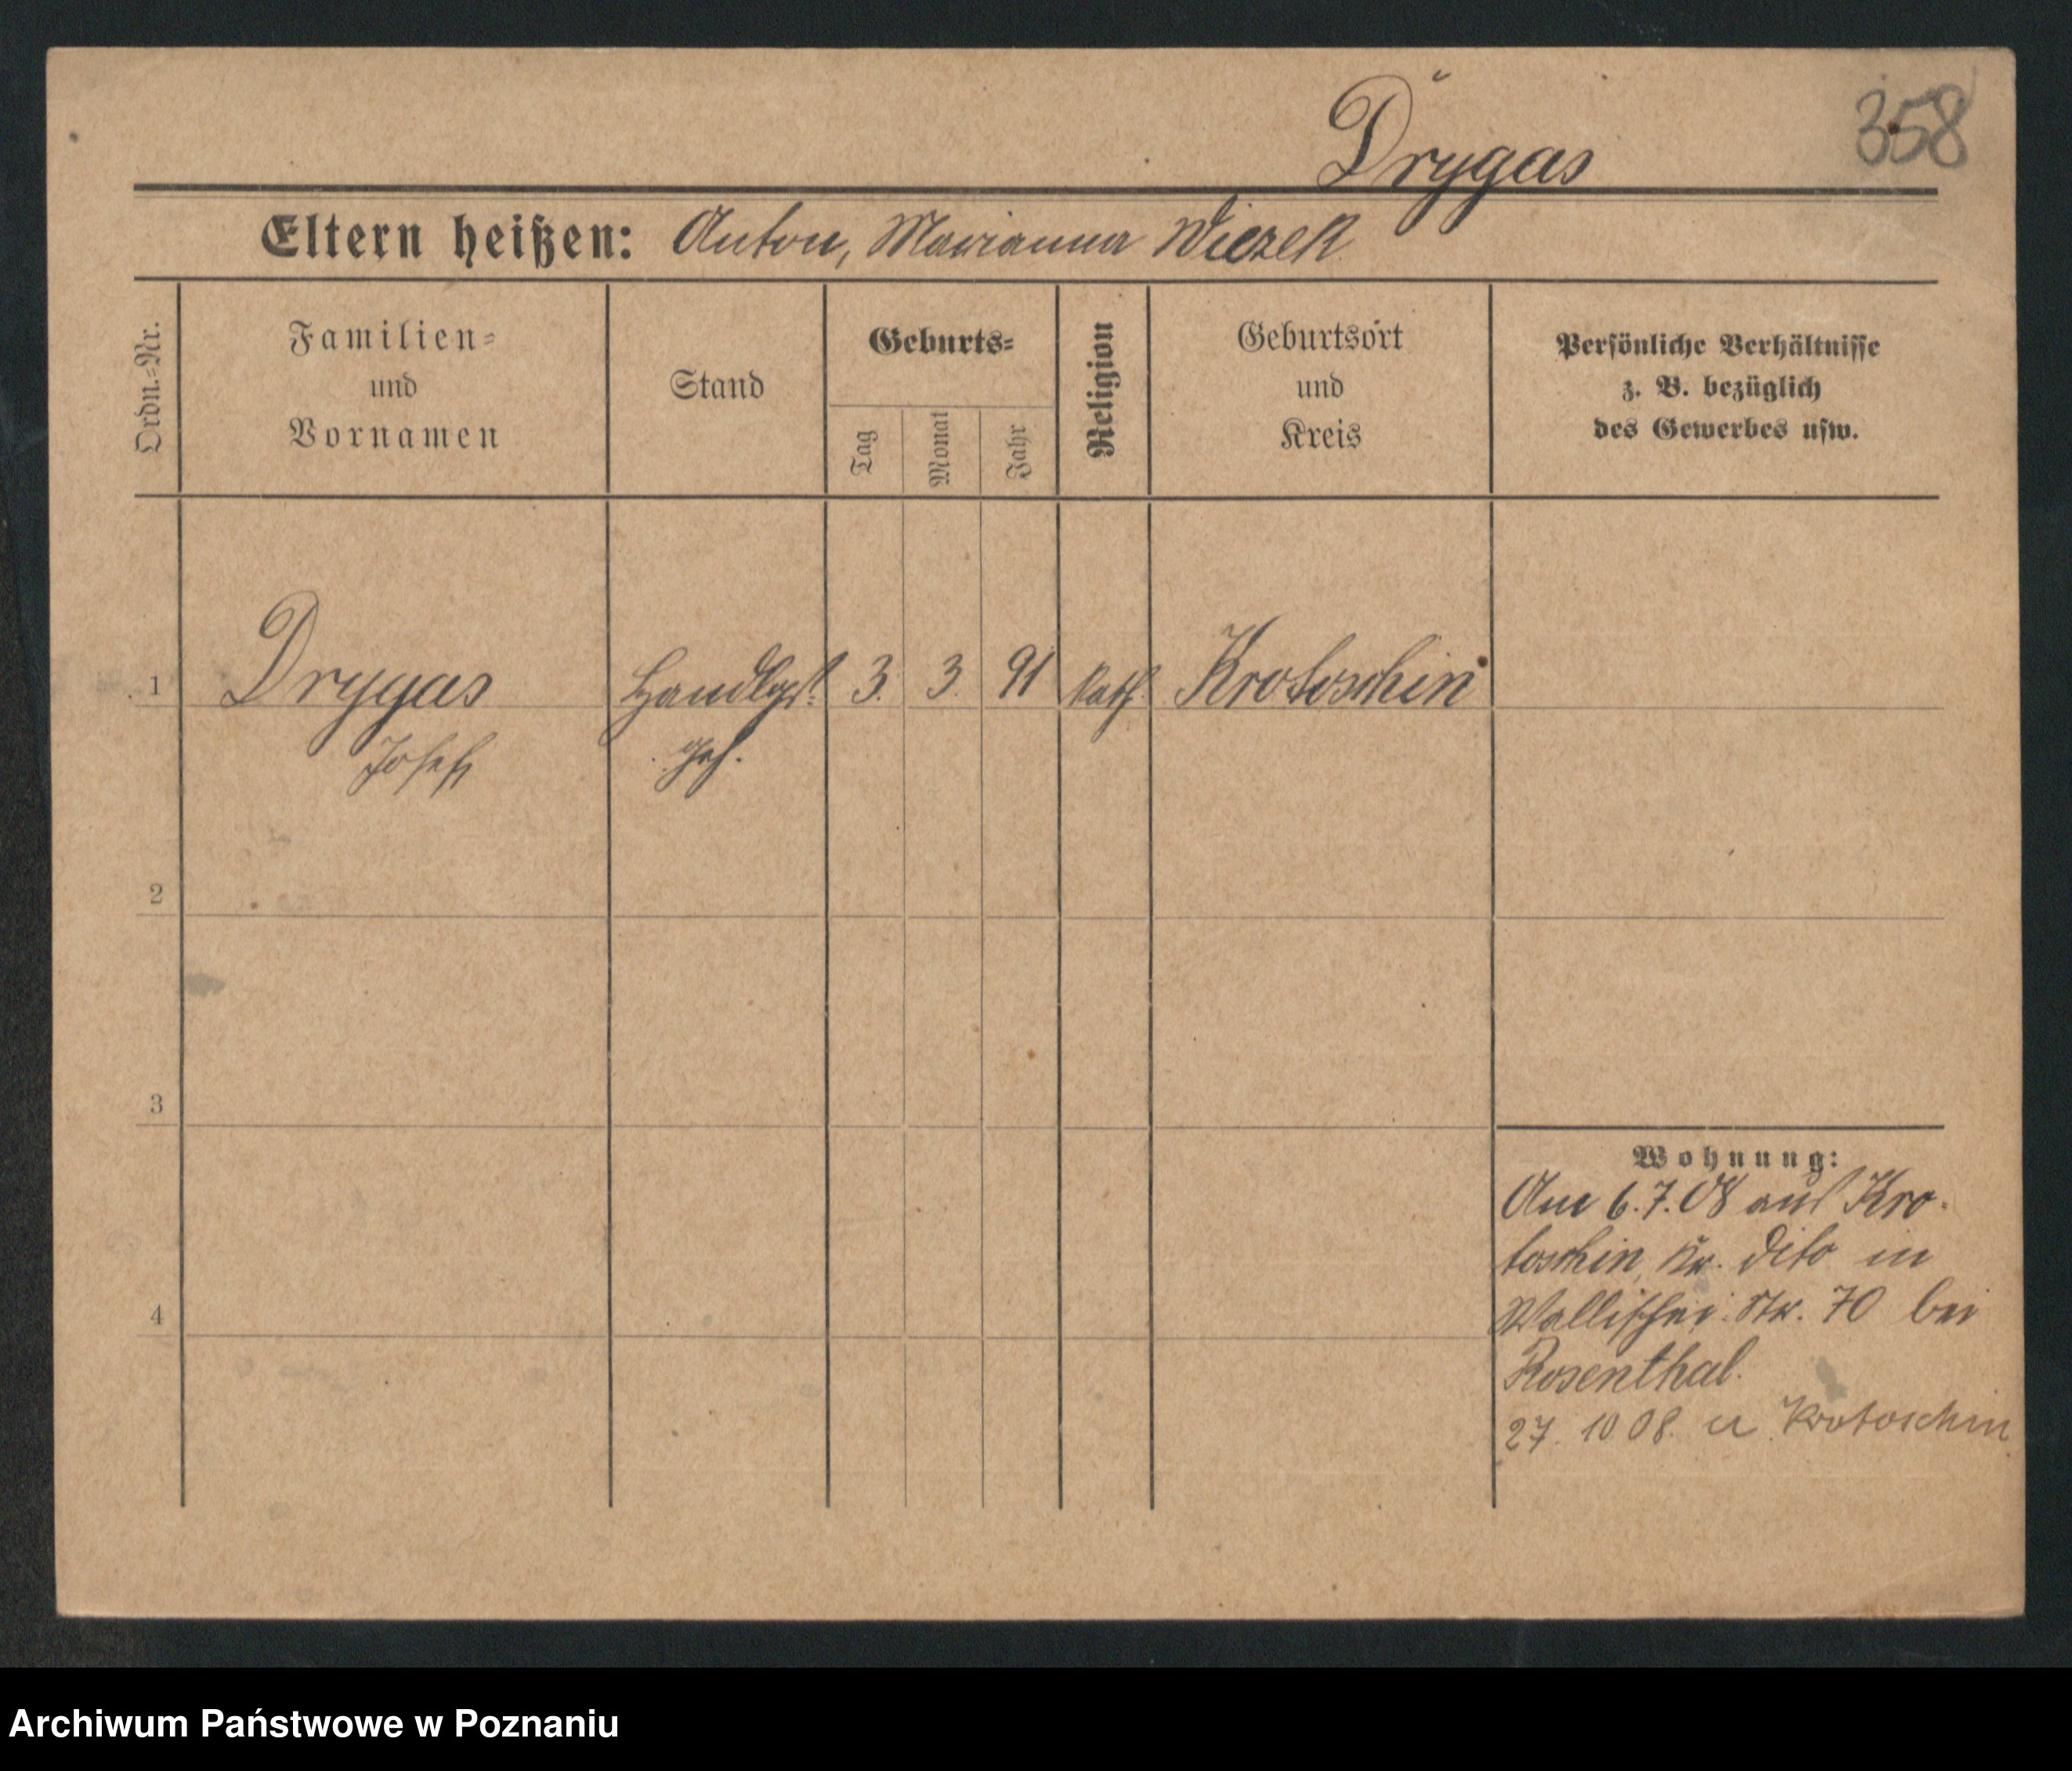 358
Drygas
Eltern heißen: Anton, Marianna Wiezek
Ordn.=Nr.
Familien=
und
Vornamen
Stand
Geburts=
Tag
Monat
Jahr
Religion
Geburtsort
und
Kreis
Persönliche Verhältnisse
z. B. bezüglich
des Gewerbes usw.
1 Drygas 3. 3. 91 kath. Krotoschin
Josef geh.
2
3
4
Wohnung:
Am 6.7.08 aus Kro-
toschin, Kr. dito in
Wallischei Str. 70 bei
Rosenthal.
27. 10 08. Krotoschin
Archiwum Państwowe w Poznaniu